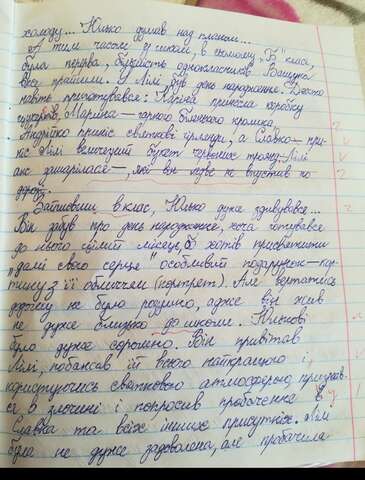 холоду... Юлько думав над планом...
А тим часом у школі, в сьомому "Б" класі,
була перерва, більшість однокласників Вашука
вже прийшли. У Лілі був день народження. Дехто
навіть приготувався: Каріна принесла коробку
цукерків, Марина — чорного білячого кролика,
Андрійко приніс святкові гірлянди, а Славко — при-
ніс Лілі величезний букет червоних троянд. Лілі
аж зашарілася —, які він ледве не впустив по
дорозі.
Зайшовши в клас, Юлько дуже здивувався...
Він забув про день народження, хоча готувався
до нього цілий місяць, бо хотів присвятити
"дамі свого серця" особливий подарунок — кар-
тину з її обличчям (портрет). Але вертатись
додому не було розумно, адже він жив
не дуже близько до школи. Юлькові
було дуже соромно. Він привітав
Лілі, побажав їй всього найкращого і
користуючись святковою атмосферою, признав-
ся в злочині і попросив пробачення в
Славка та всіх інших присутніх. Лілі
була не дуже задоволена, але пробачила